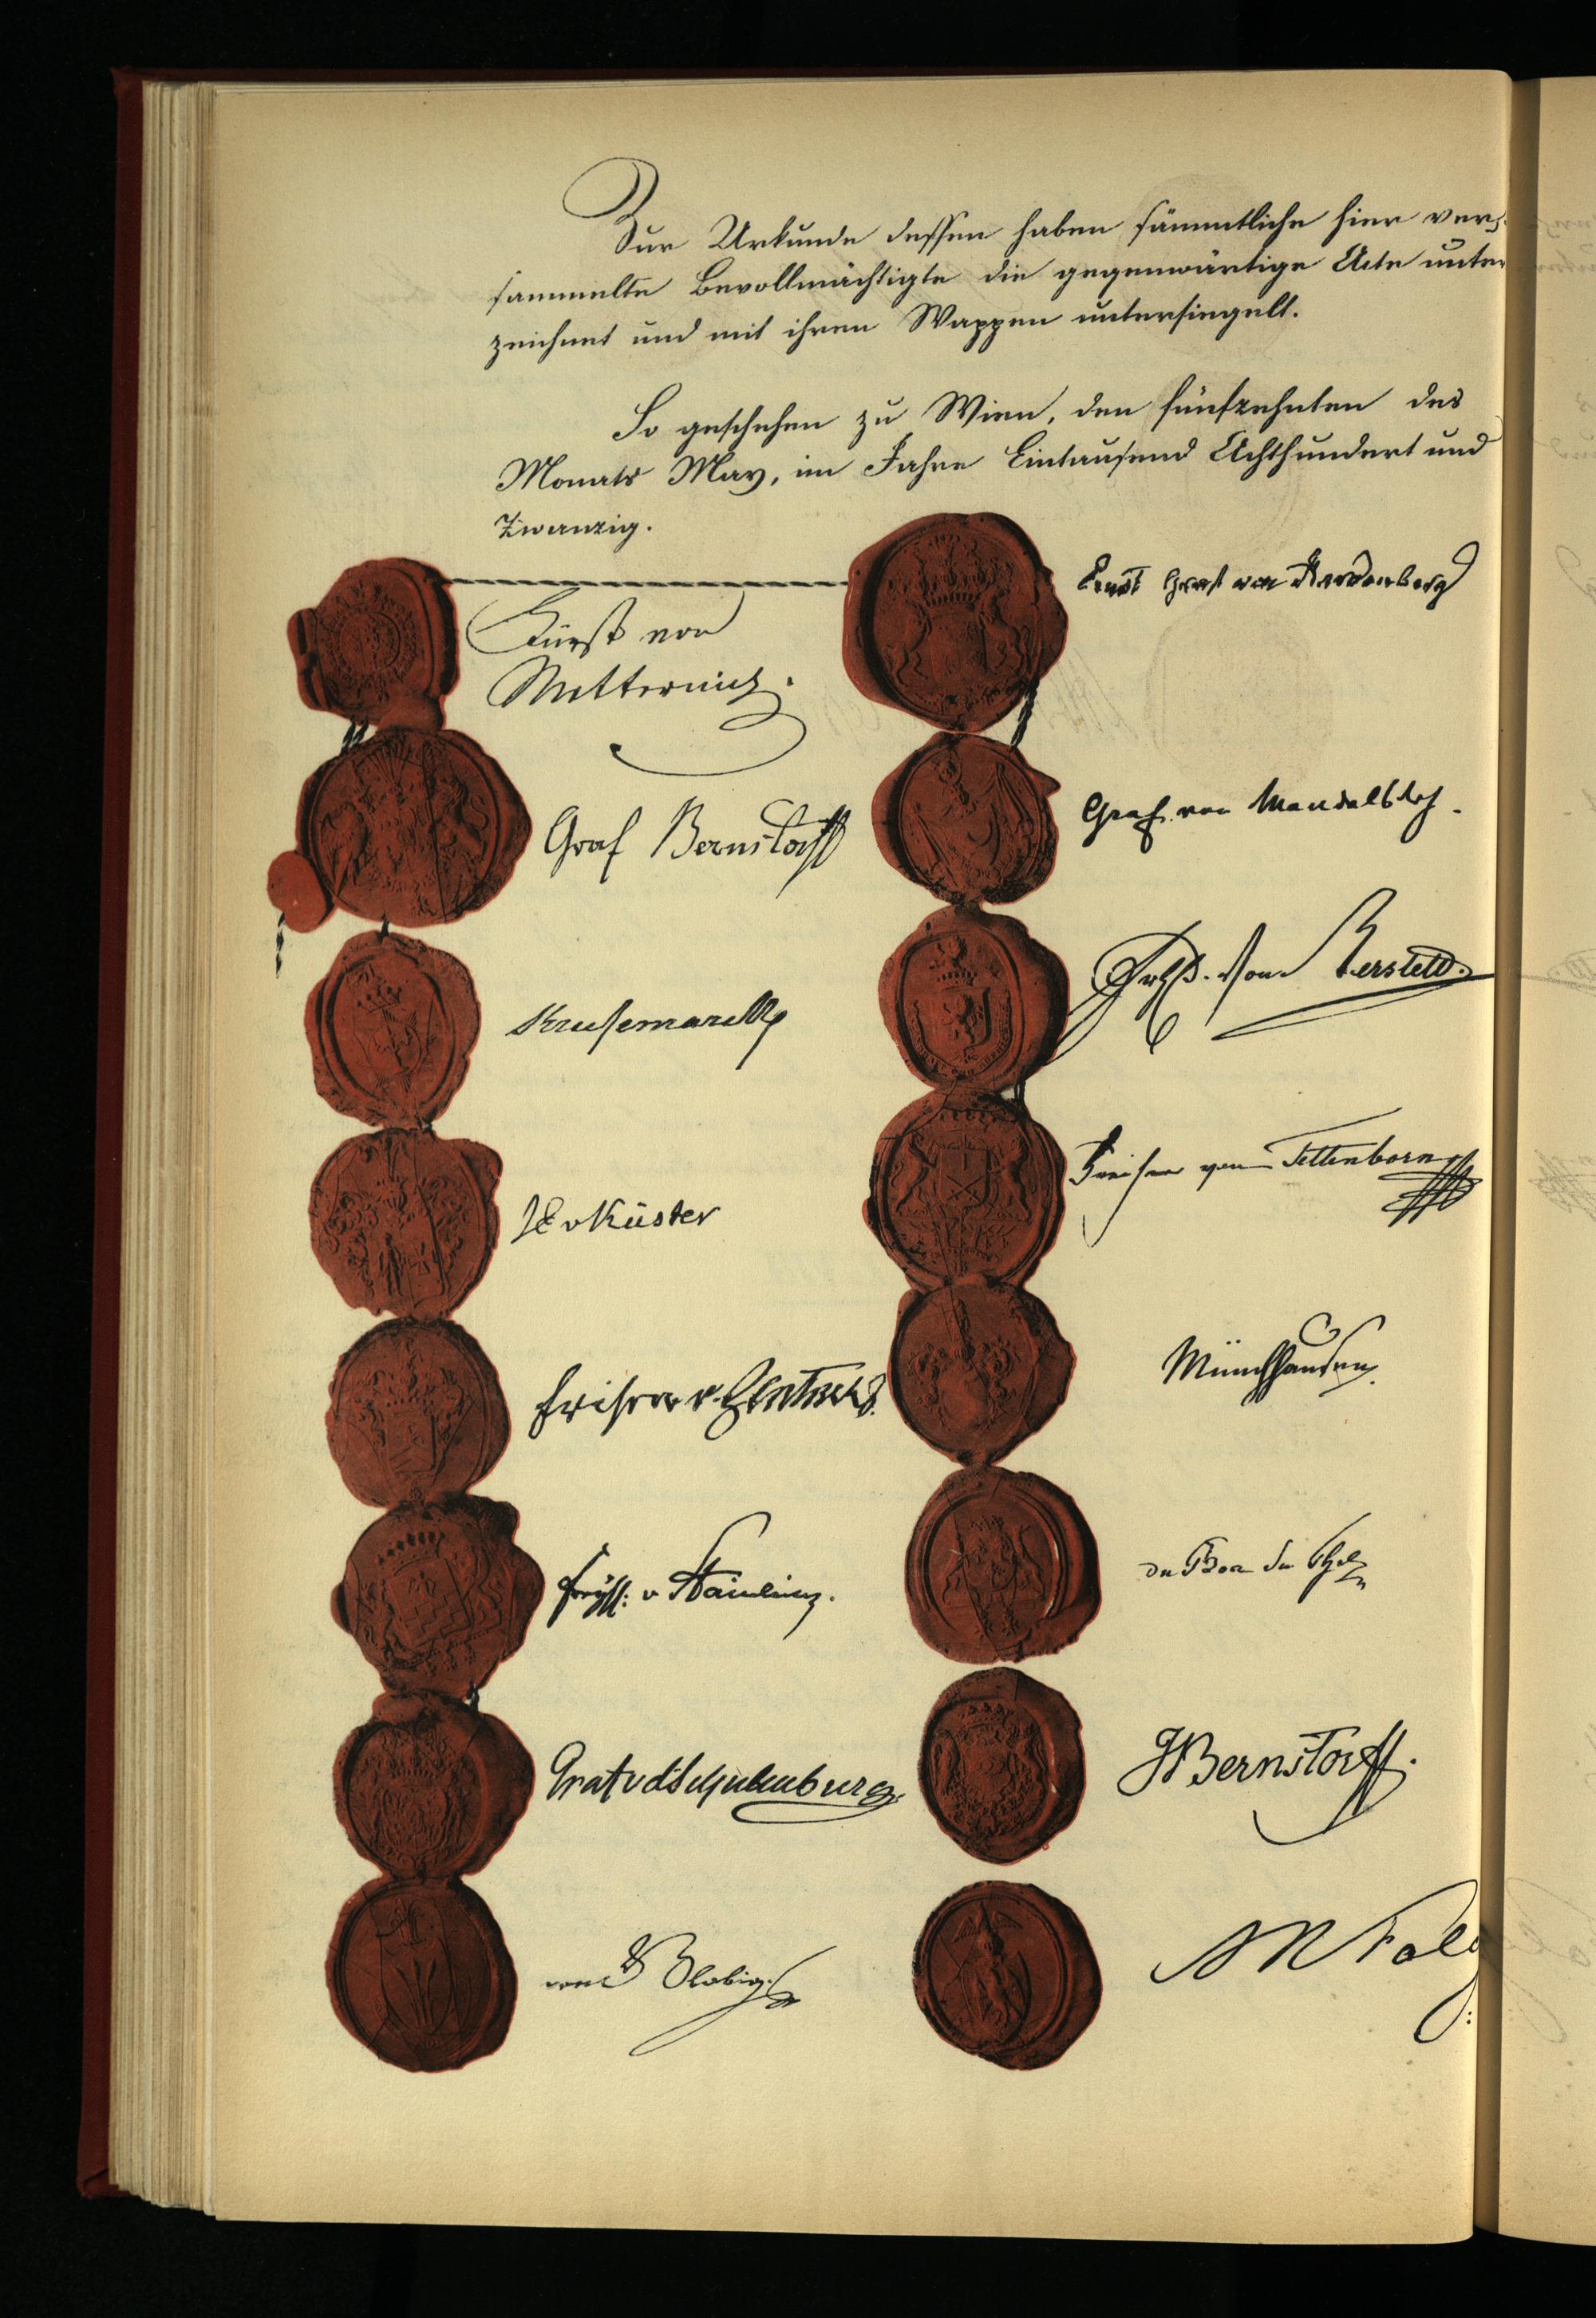 Zur Urkunde dessen haben sämmtliche hier ver-
sammelte Bevollmächtigte die gegenwärtige Acte unter
zeichnet und mit ihren Wappen untersiegelt.
So geschehen zu Wien, den fünfzehnten des
Monats May, im Jahre Eintausend Achthundert und
Zwanzig.
Fürst von
Metternich.
Graf Bernstorff
Krusemarck
JE v Küster
Freiherr v. Zentner
Freyh: v Stainlein.
Graf v d Schulenburg.
von Globig
Ernst Graf von Hardenberg
Graf von Mandelsloh.
Frhr. von Berstett.
Freiherr von Tettenborn
Münchhausen.
du Bos du Thil
JBernstorff.